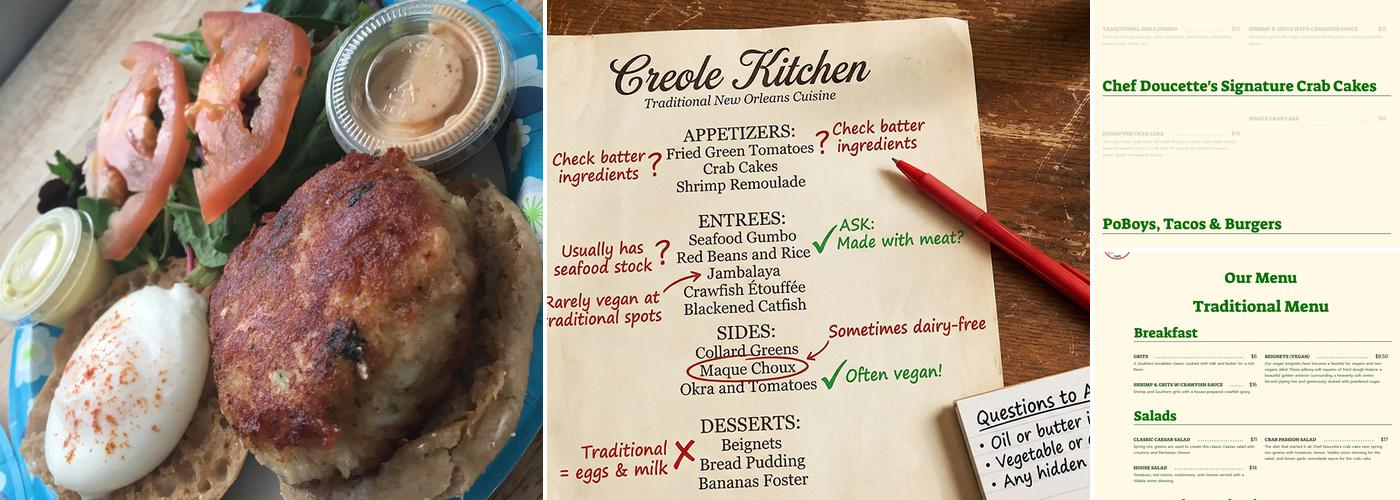 Creole Kitchen
Traditional New Orleans Cuisine
APPETIZERS:
Fried Green Tomatoes
Crab Cakes
Shrimp Remoulade
Check batter
ingredients ?
? Check batter
ingredients
ENTREES:
Seafood Gumbo
Red Beans and Rice
Jambalaya
Crawfish Étouffée
Blackened Catfish
Usually has
seafood stock ?
✓ ASK:
Made with meat?
Rarely vegan at
traditional spots
SIDES:
Collard Greens
Maque Choux
Okra and Tomatoes
Sometimes dairy-free
✓ Often vegan!
DESSERTS:
Beignets
Bread Pudding
Bananas Foster
Traditional
= eggs & milk X
Questions to A
• Oil or butter i
• Vegetable or
• Any hidden
TRADITIONAL OKRA GUMBO $15
SHRIMP & GRITS WITH CRAWFISH SAUCE $16
Chef Doucette's Signature Crab Cakes
SIGNATURE CRAB CAKE $14
SINGLE CRAB CAKE $14
PoBoys, Tacos & Burgers
Our Menu
Traditional Menu
Breakfast
GRITS $6
A Southern breakfast classic cooked with milk and butter for a rich
flavor.
SHRIMP & GRITS W/CRAWFISH SAUCE $16
Shrimp and Southern grits with a house-prepared crawfish gravy.
BEIGNETS (VEGAN) $8.50
Our vegan beignets have become a favorite for vegans and non-
vegans alike! These pillowy-soft squares of fried dough feature a
beautiful golden exterior surrounding a heavenly soft center.
Served piping hot and generously dusted with powdered sugar.
Salads
CLASSIC CAESAR SALAD $11
Spring mix greens are used to create this classic Caesar salad with
croutons and Parmesan cheese.
HOUSE SALAD $14
Tomatoes, red onions, mushrooms, and cheese served with a
Vidalia onion dressing.
CRAB PASSION SALAD $17
The dish that started it all! Chef Doucette's crab cake over spring
mix greens with tomatoes, lemon, Vidalia onion dressing for the
salad, and lemon garlic remoulade sauce for the crab cake.